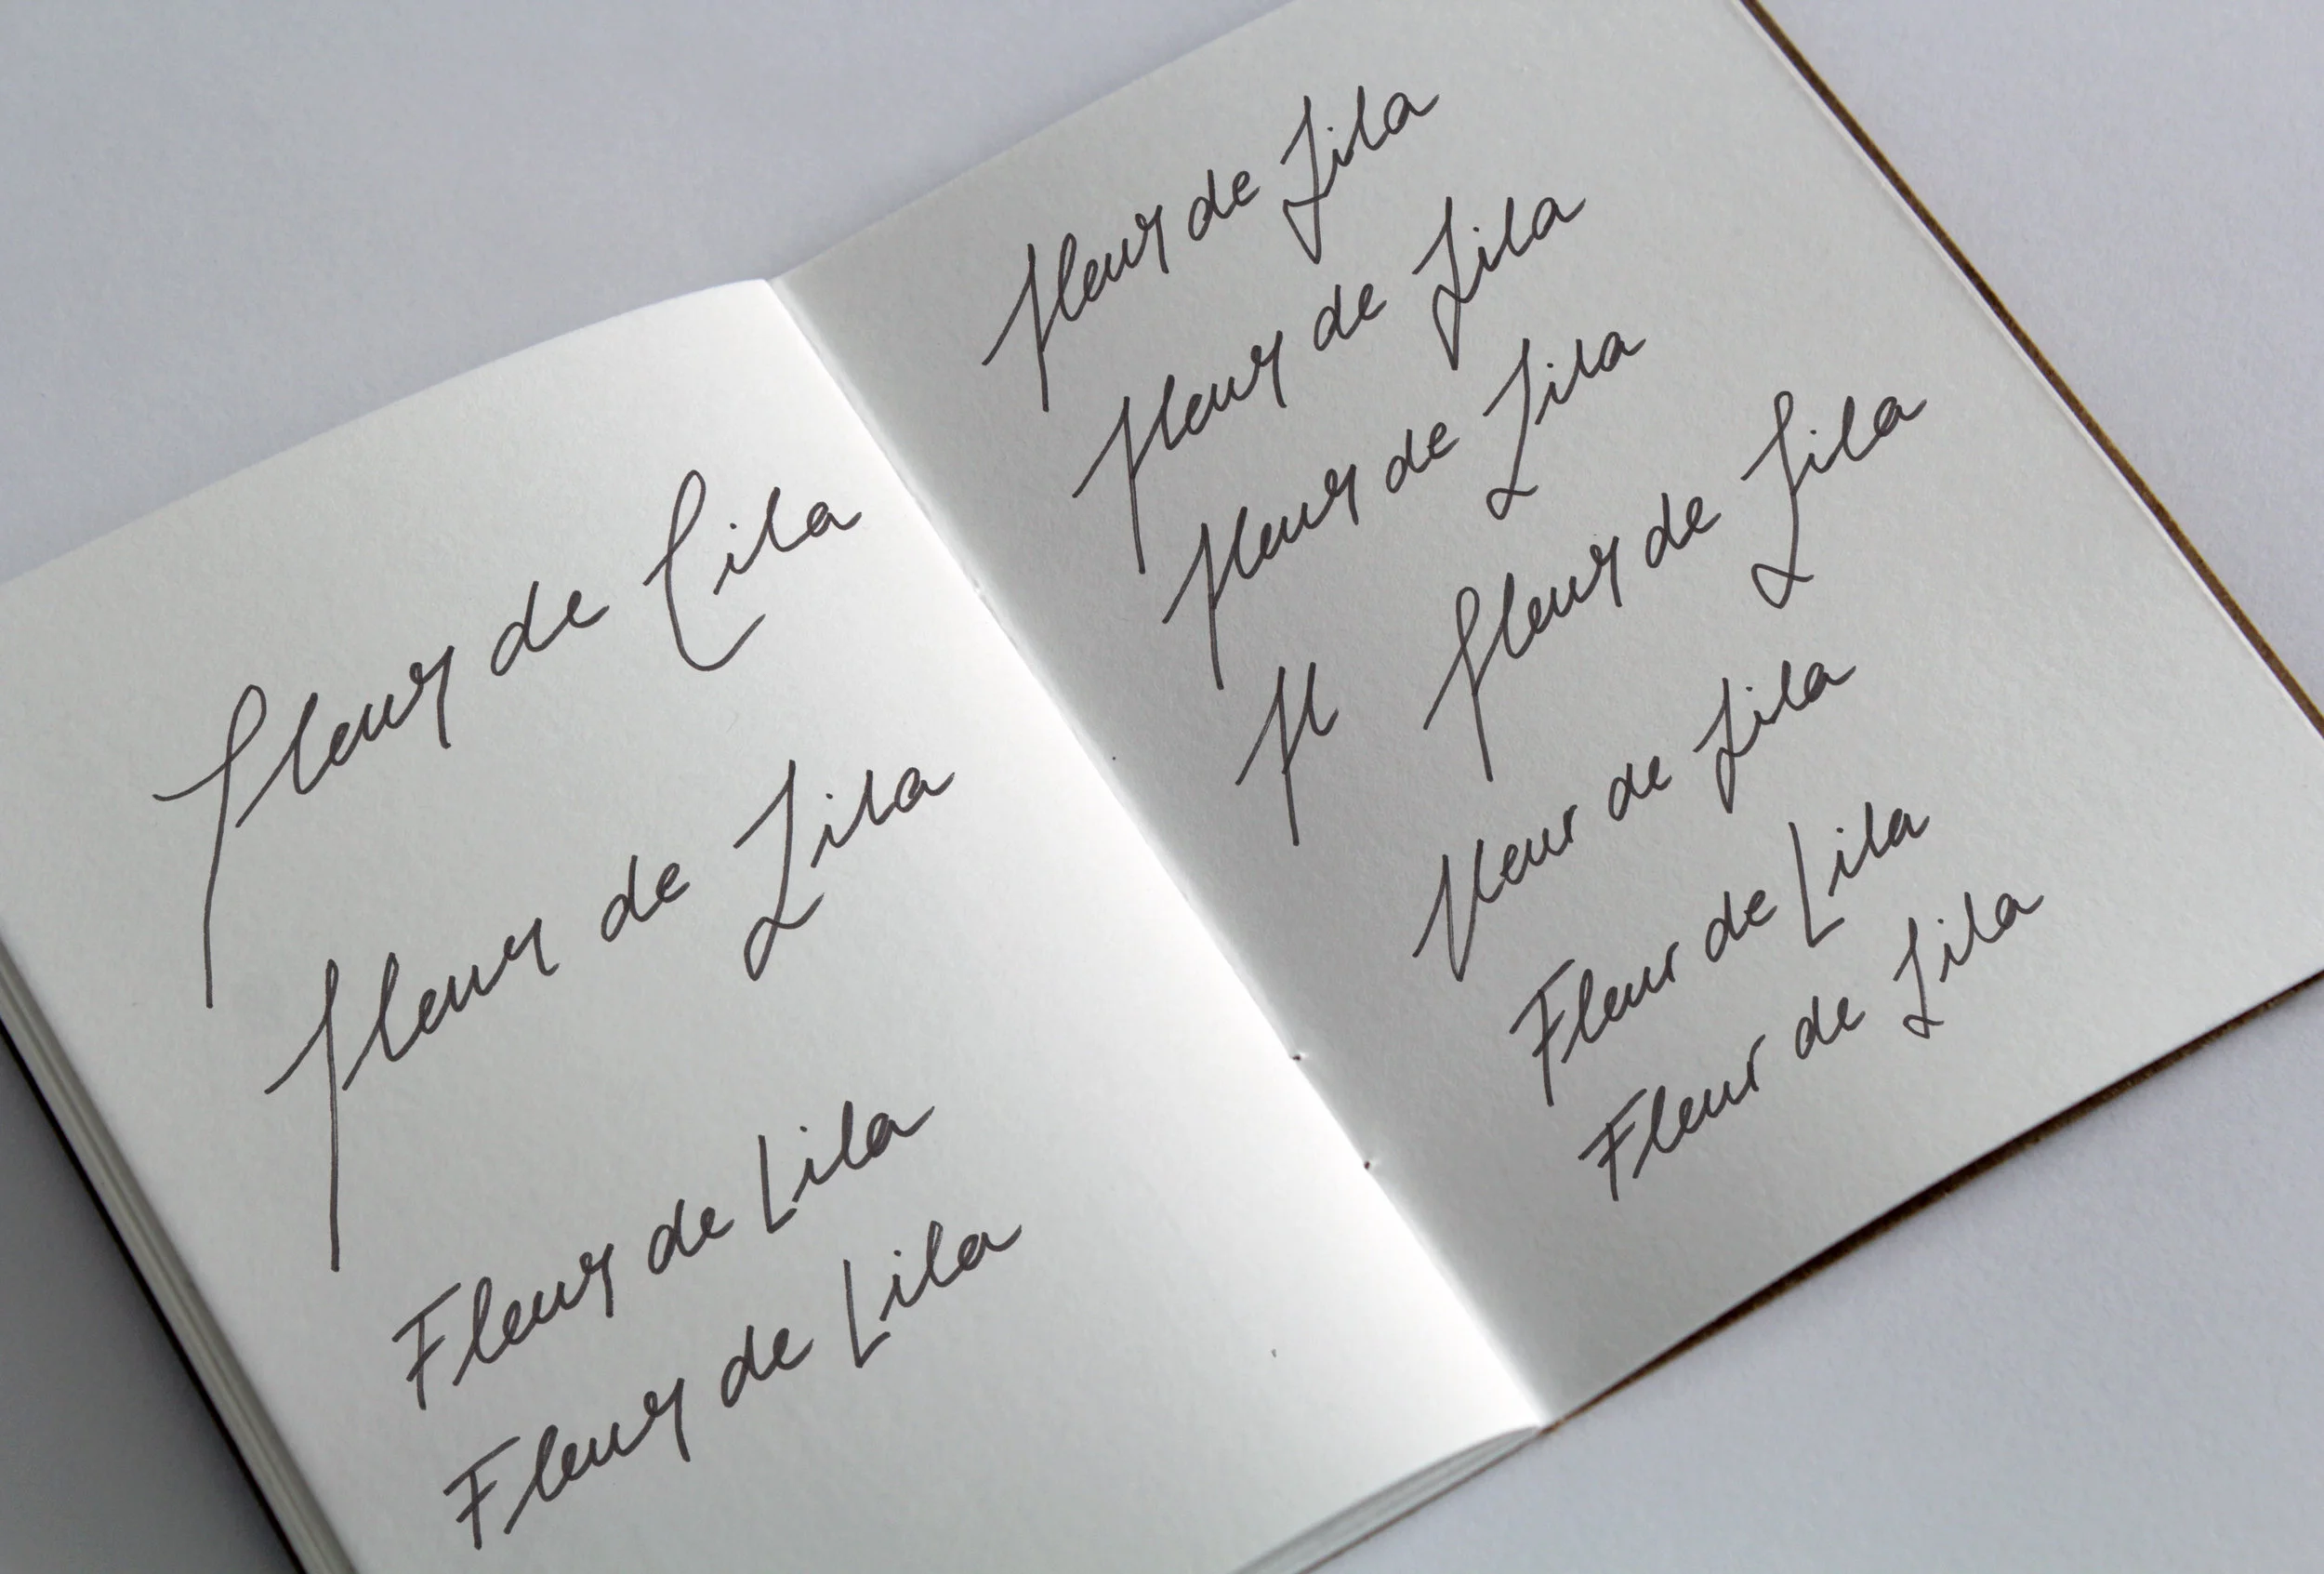 Fleur de Lila
Fleur de Lila
Fleur de Lila
Fleur de Lila
fleur de Lila
fleur de Lila
fleur de Lila
fl fleur de Lila
fleur de Lila
Fleur de Lila
Fleur de Lila